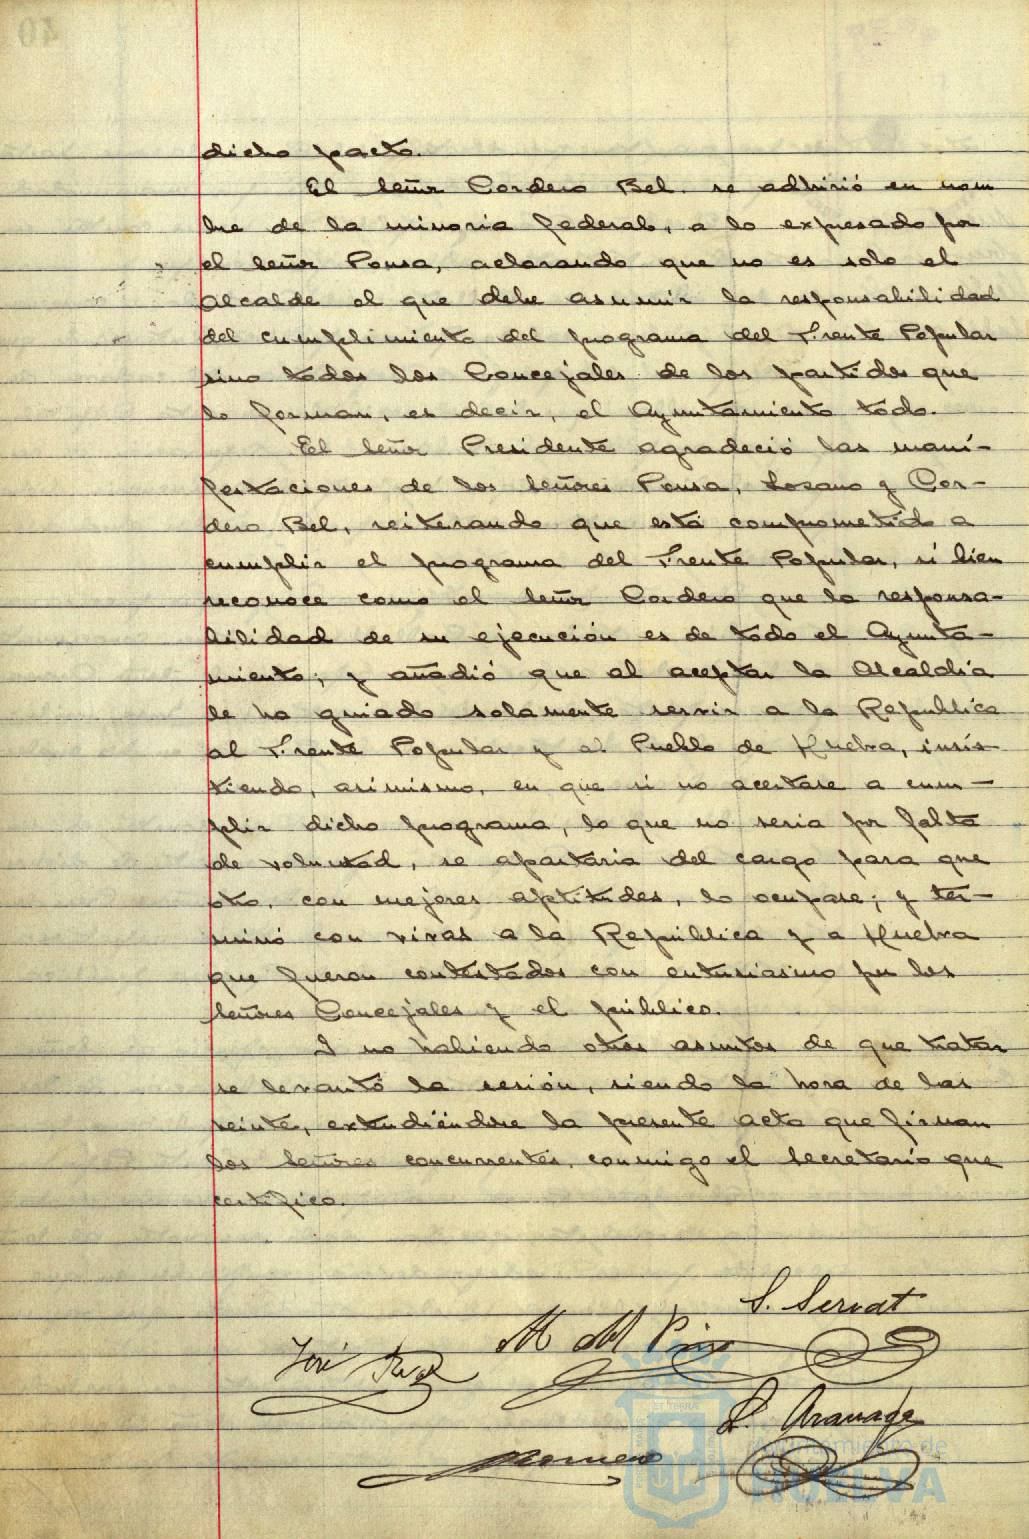 dicho pacto.
El Señor Cordero Bel se adhirió en nom
bre de la minoria federal, a lo expresado por
el Señor Ponsa, aclarando que no es solo el
Alcalde el que debe asumir la responsabilidad
del cumplimiento del programa del Frente Popular
sino todos los Concejales de los partidos que
lo forman, es decir, el Ayuntamiento todo.
El Señor Presidente agradeció las mani-
festaciones de los Señores Ponsa, Lozano y Cor-
dero Bel, reiterando que está comprometido a
cumplir el programa del Frente Popular, si bien
reconoce como el Señor Cordero que la responsa-
bilidad de su ejecución es de todo el Ayunta-
miento; y añadió que al aceptar la Alcaldía
le ha guiado solamente servir a la República
al Frente Popular y al Pueblo de Huelva, insis
tiendo, asimismo, en que si no acertase a cum-
plir dicho programa, lo que no seria por falta
de voluntad, se apartaria del cargo para que
otro, con mejores aptitudes, lo ocupase; y ter-
minó con vivas a la República y a Huelva
que fueron contestados con entusiasmo por los
Señores Concejales y el público.
Y no habiendo otros asuntos de que tratar
se levantó la sesión, siendo la hora de las
veinte, extendiéndose la presente acta que firman
los Señores concurrentes, conmigo el Secretario que
certifico.
S. Servat
M del Pino
José
Aramage
Romero
Ayuntamiento de
HUELVA
40